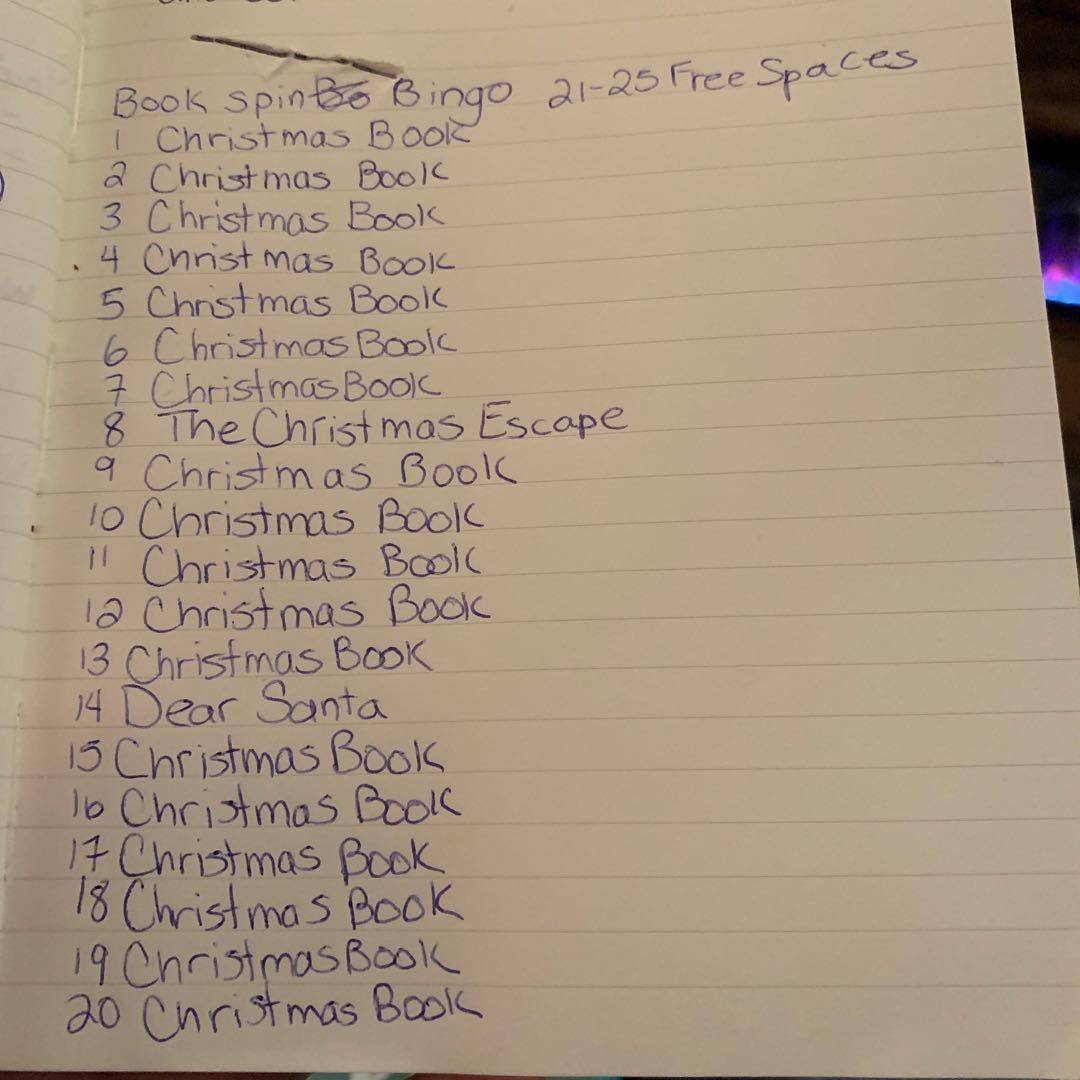 Book spin Bingo 21-25 Free Spaces
1 Christmas Book
2 Christmas Book
3 Christmas Book
4 Christmas Book
5 Christmas Book
6 Christmas Book
7 Christmas Book
8 The Christmas Escape
9 Christmas Book
10 Christmas Book
11 Christmas Book
12 Christmas Book
13 Christmas Book
14 Dear Santa
15 Christmas Book
16 Christmas Book
17 Christmas Book
18 Christmas Book
19 Christmas Book
20 Christmas Book